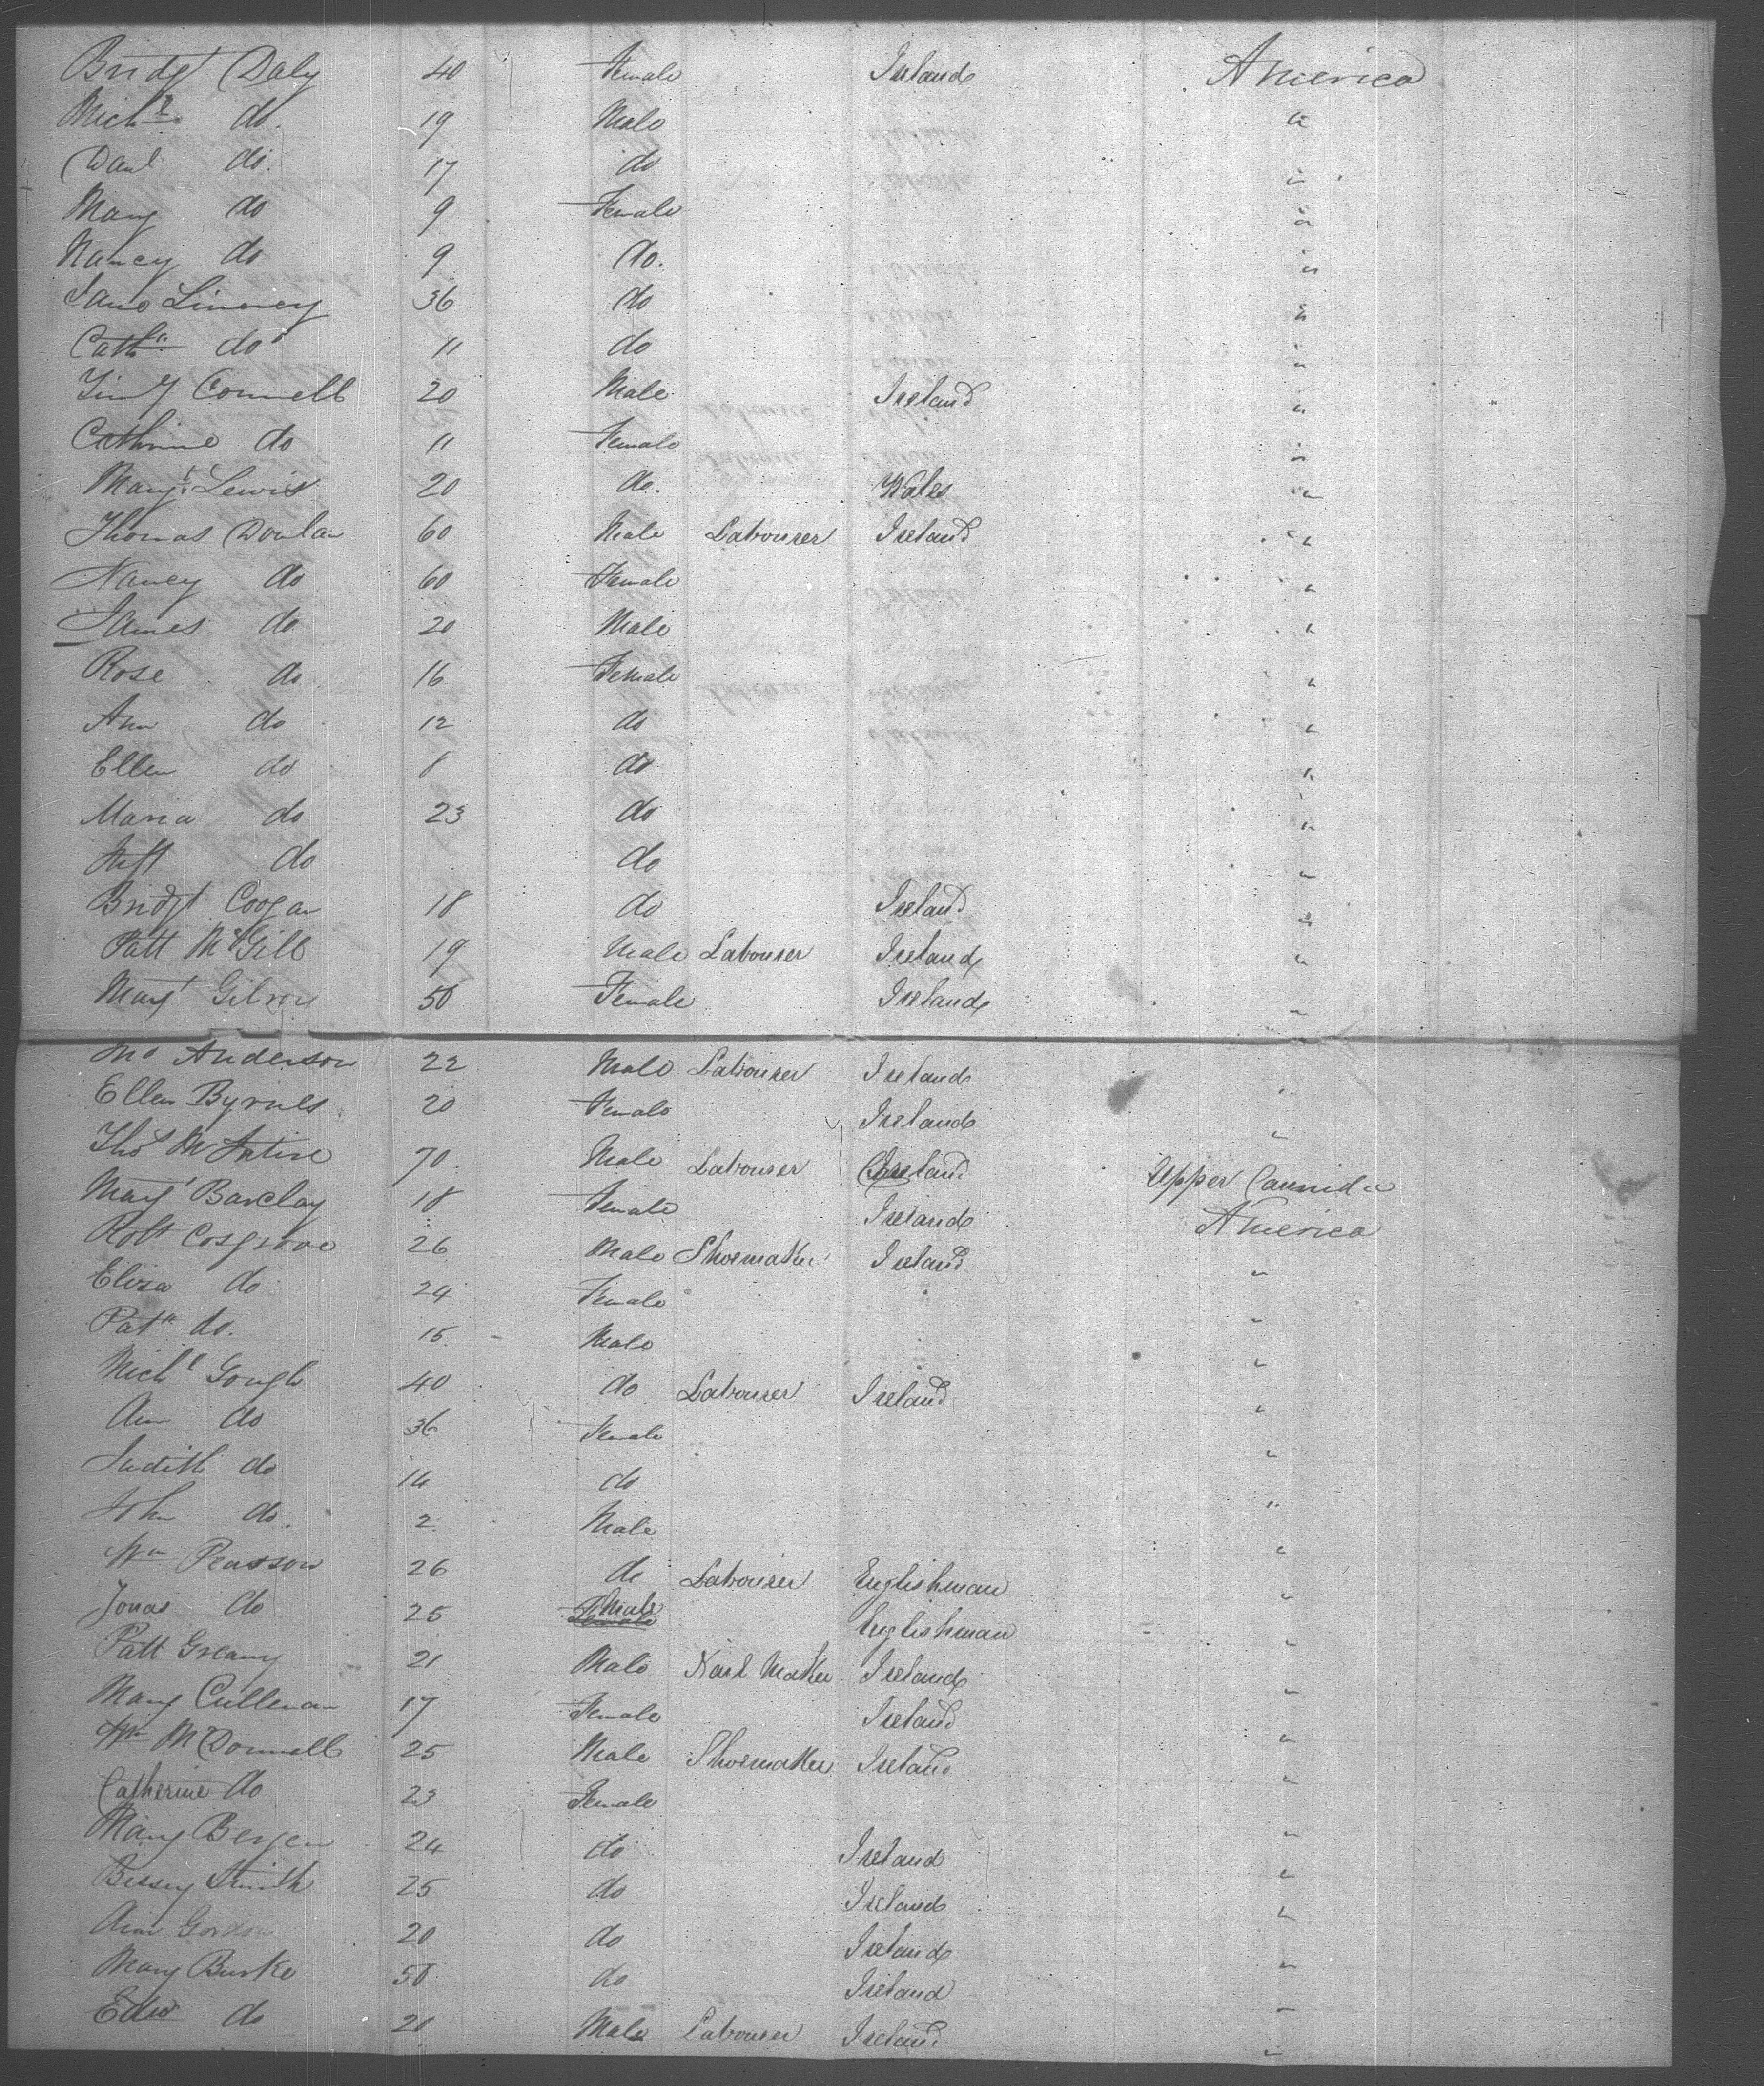 Bridgt Daly 40 Female Ireland America
Michl do. 19 Male "
Danl do. 17 do "
Mary do 9 Female "
Nancy do 9 do. "
Jane 36 do "
Cathe do 11 do "
Timy Connell 20 Male Ireland "
Cathrine do 11 Female "
Margt Lewis 20 do. Wales "
Thomas Donlan 60 Male Labourer Ireland "
Nancy do 60 Female "
James do 20 Male "
Rose do 16 Female "
Ann do 12 do "
Ellen do 8 do "
Maria do 23 do "
Inft do do "
Bridgt Coogan 18 do Ireland "
Patt McGill 19 Male Labourer Ireland "
Margt 50 Female Ireland "
Anderson 22 Male Labourer Ireland "
Ellen Byrnes 20 Female Ireland "
Thos McIntire 70 Male Labourer Ireland Upper Cannida
Margt Barclay 18 Female Ireland America
Robt Cosgrove 26 Male Shoemaker Ireland "
Eliza do 24 Female "
Patk do. 15 Male "
Michl Gough 40 do Labourer Ireland "
Ann do 36 Female "
Judith do 14 do "
John do. 2 Male "
Wm Pearson 26 do Labourer Englishman "
Jonas do 25 Male Englishman "
Patt Greany 21 Male Nail Maker Ireland "
Mary Cullenan 17 Female Ireland "
Wm McDonnell 25 Male Shoemaker Ireland "
Catherine do 23 Female "
Mary Bergen 24 do Ireland "
Bessy Smith 25 do Ireland "
Ann Gordon 20 do Ireland "
Mary Burke 50 do Ireland "
Edwd do 20 Male Labourer Ireland "